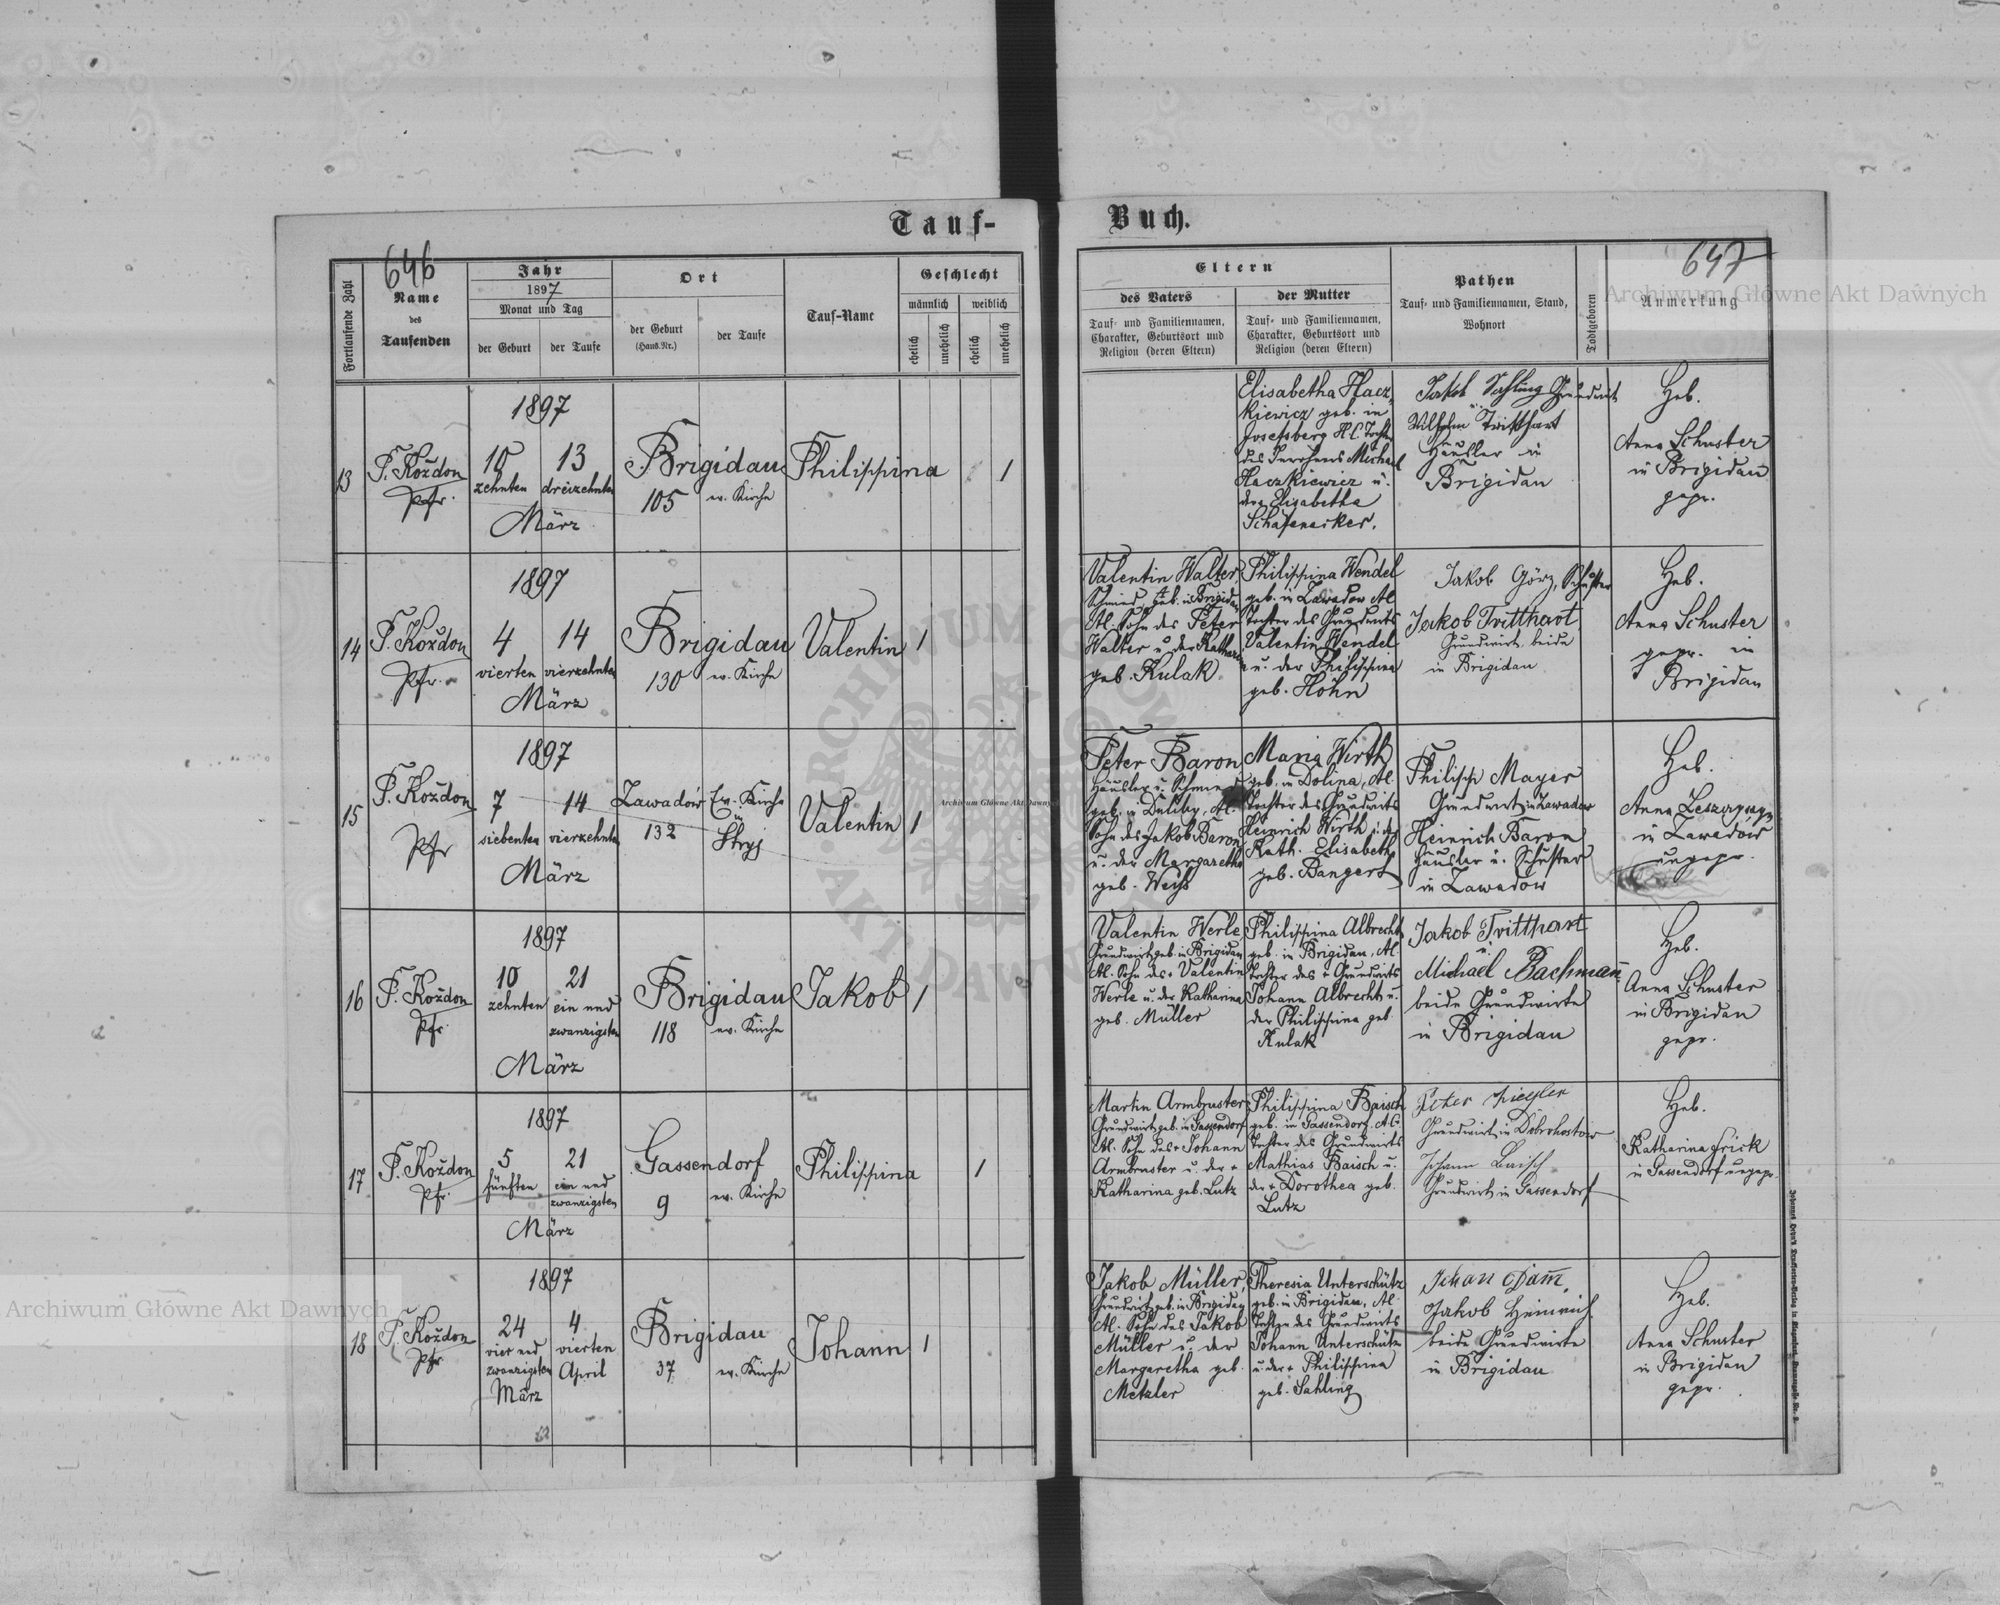 Tauf-
Buch.
646
647
Fortlaufende Zahl
Name
des
Taufenden
Jahr
1897
Monat und Tag
der Geburt
der Taufe
Ort
der Geburt
(Haus-Nr.)
der Taufe
Tauf-Name
Geschlecht
männlich
weiblich
ehelich
unehelich
ehelich
unehelich
Eltern
des Vaters
Tauf- und Familiennamen,
Charakter, Geburtsort und
Religion (deren Eltern)
der Mutter
Tauf- und Familiennamen,
Charakter, Geburtsort und
Religion (deren Eltern)
Pathen
Tauf- und Familiennamen, Stand,
Wohnort
Todtgeboren
Anmerkung
13
F. Kożdon
Pfr.
1897
10
zehnten
13
dreizehnten
März
Brigidau
105
ev. Kirche
Philippina
1
Elisabetha Hacz-
kiewicz geb. in
Josefsberg H.C. Tochter
des Michael
Haczkiewicz u.
der Elisabetha
Schafenacker.
Jakob Sahling Grundwirt
u.
Wilhelm Tritthart
Häusler in
Brigidau
Heb.
Anna Schuster
in Brigidau
gepr.
14
F. Kożdon
Pfr.
1897
4
vierten
14
vierzehnten
März
Brigidau
130
ev. Kirche
Valentin
1
Valentin Walter,
Schmied, geb. in Brigidau
AC. Sohn des Peter
Walter u. der Kathar.
geb. Kulak
Philippina Wendel
geb. in Zawadow AC
Tochter des Grundwirts
Valentin Wendel
u. der Philippina
geb. Höhn
Jakob Görz, Schuster
Jakob Tritthart
Grundwirt beide
in Brigidau
Heb.
Anna Schuster
gepr. in
Brigidau
15
F. Kożdon
Pfr
1897
7
siebenten
14
vierzehnten
März
Zawadów
132
Ev. Kirche
in
Stryj
Valentin
1
Peter Baron
Häusler u. Schmied
geb. in Duliby, AC.
Sohn des Jakob Baron
u. der Margaretha
geb. Weiß
Maria Wirth
geb. in Dolina, AC
Tochter des Grundwirts
Heinrich Wirth u. der
Kath. Elisabeth
geb. Bangert
Philipp Mayer
Grundwirt in Zawadow
Heinrich Baron
Häusler u. Schuster
in Zawadow
Heb.
Anna
in Zawadów
ungepr.
16
F. Kożdon
Pfr.
1897
10
zehnten
21
ein und
zwanzigsten
März
Brigidau
118
ev. Kirche
Jakob
1
Valentin Werle
Grundwirt geb. in Brigidau
AC. Sohn des + Valentin
Werle u. der Katharina
geb. Müller
Philippina Albrecht
geb. in Brigidau, AC.
Tochter des + Grundwirts
Johann Albrecht u.
der Philippina geb.
Kulak
Jakob Tritthart
u.
Michael Bachmann
beide Grundwirte
in Brigidau
Heb.
Anna Schuster
in Brigidau
gepr.
17
F. Kożdon
Pfr.
1897
5
fünften
21
ein und
zwanzigsten
März
Gassendorf
9
ev. Kirche
Philippina
1
Martin Armbruster
Grundwirt geb. in Gassendorf
AC. Sohn des + Johann
Armbruster u. der +
Katharina geb. Lutz
Philippina Baisch
geb. in Gassendorf, AC.
Tochter des Grundwirts
Mathias Baisch u.
der + Dorothea geb.
Lutz
Peter Ziegler
Grundwirt in Dobrohostow
Johann Baisch
Grundwirt in Gassendorf
Heb.
Katharina Frick
in Gassendorf ungepr.
18
F. Kożdon
Pfr
1897
24
vier und
zwanzigsten
März
4
vierten
April
Brigidau
37
ev. Kirche
Johann
1
Jakob Müller,
Grundwirt geb. in Brigidau
AC. Sohn des Jakob
Müller u. der
Margaretha geb.
Metzler
Theresia Unterschütz
geb. in Brigidau, AC
Tochter des Grundwirts
Johann Unterschütz
u. der + Philippina
geb. Sahling
Johan Dam̄,
Jakob Heinrich
beide Grundwirte
in Brigidau
Heb.
Anna Schuster
in Brigidau
gepr.
Archiwum Główne Akt Dawnych
Archiwum Główne Akt Dawnych
Archiwum Główne Akt Dawnych